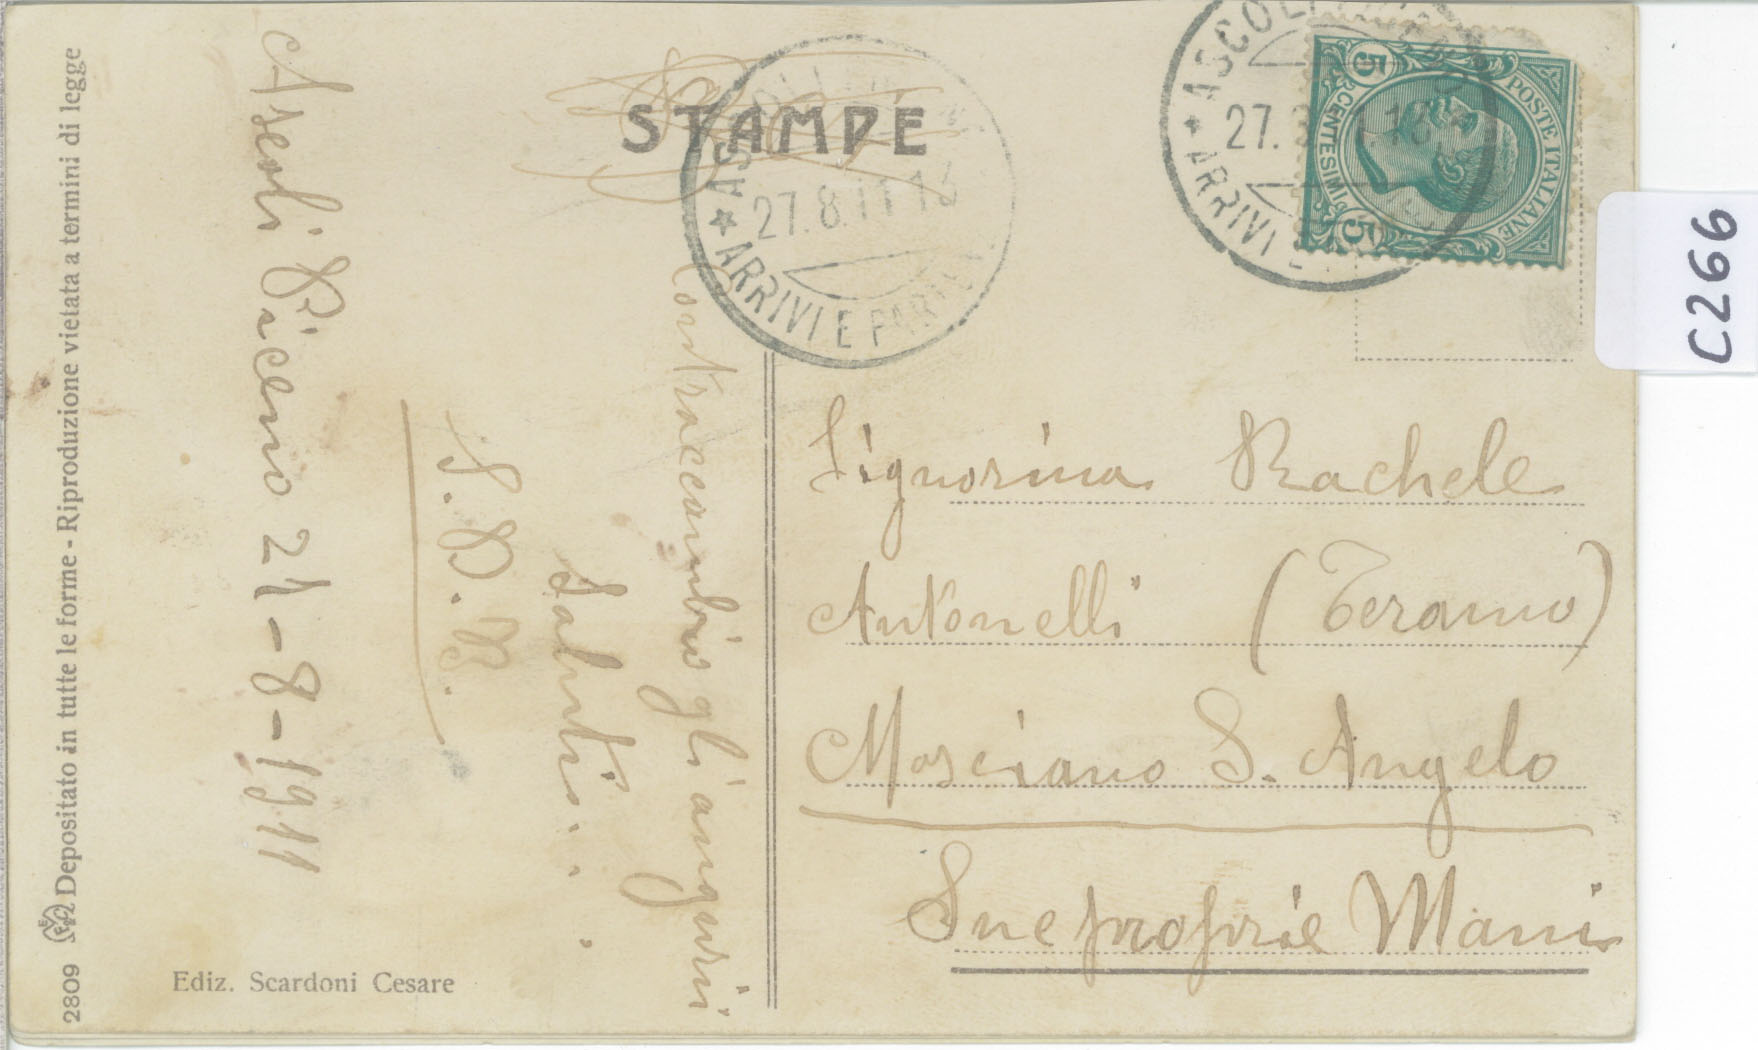 2809 Depositato in tutte le forme - Riproduzione vietata a termini di legge
Ediz. Scardoni Cesare
Ascoli Piceno 27-8-1911
Contraccambio gli auguri
Saluti
S. B. B.
STAMPE
27.8.11 18
ARRIVI E PARTENZE
ASCOLI PICENO
27.8.11.18
ARRIVI E
POSTE ITALIANE
CENTESIMI
5
5
Signorina Rachele
Antonelli (Teramo)
Mosciano S. Angelo
Sue proprie Mani
C266